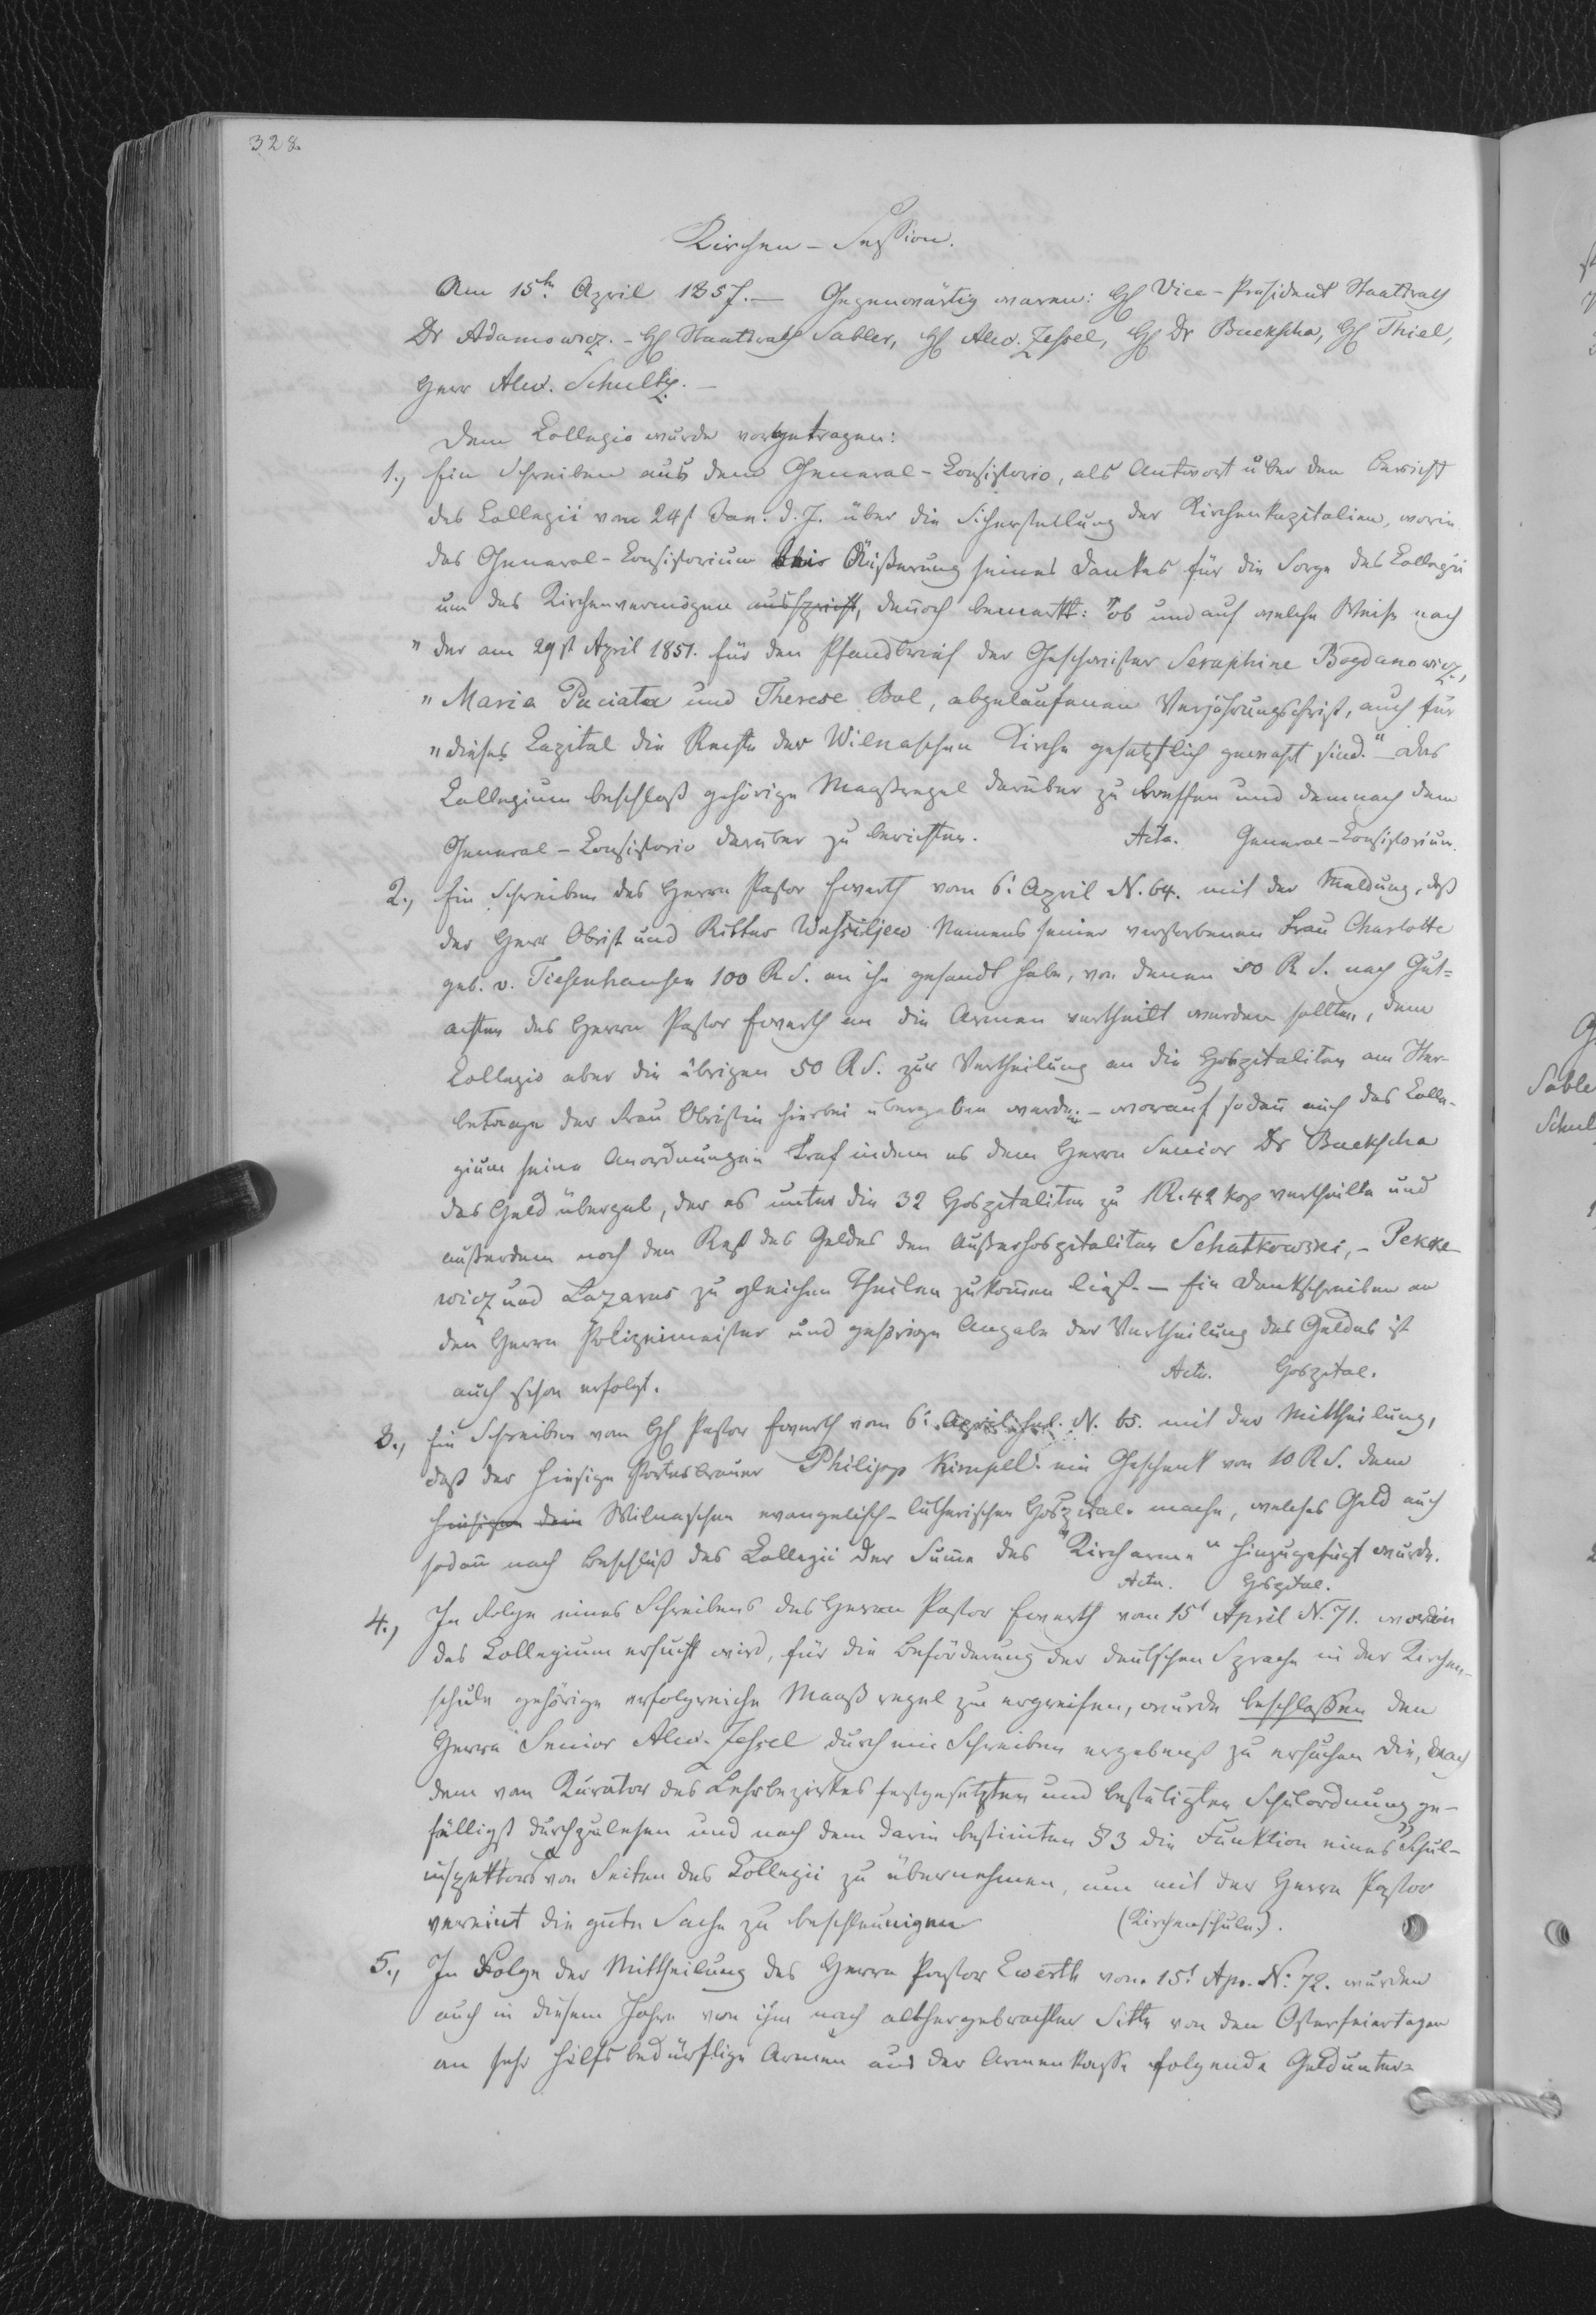 328.
Kirchen-Session.
Am 15ten April 1857.— Gegenwärtig waren: H Vice-Präsident Staatsrath
Dr Adamowicz.- H Staatsrath Sabler, H Alex. Jessel, H Dr Buckscha, H Thiel,
Herr Alex. Schultz.—
Dem Collegio wurde vorgetragen:
1., Ein Schreiben aus dem General-Consistorio, als Antwort über den Bericht
des Collegii vom 24st Jan. d. J. über die Sicherstellung der Kirchenkapitalien, worin
das General-Consistorium bei Äußerung seines Dankes für die Sorge des Collegii
um das Kirchenvermögen ausspricht, deñoch bemerkt: "ob und auf welche Weise nach
"der am 29st April 1851. für den Pfandbrief der Geschwister Seraphine Bogdanowicz,
"Maria Paciata und Therese Bal, abgelaufenen Verjährungsfrist, auch für
"dieses Capital die Rechte der Wilnaschen Kirche gesetzlich gewahrt sind."- Das
Collegium beschloß gehörige Maaßregel darüber zu treffen und demnach dem
General-Consistorio darüber zu berichten. Acta. General-Consistorium.
2., Ein Schreiben des Herrn Pastor Ewerth vom 6t April N. 64. mit der Meldung, daß
der Herr Obrist und Ritter Wassiljew Namens seiner verstorbenen Frau Charlotte
geb. v. Tiesenhausen 100 R S. an ihn gesandt habe, von denen 50 R. S. nach Gut=
achten des Herrn Pastor Ewerth an die Armen vertheilt werden sollten, dem
Collegio aber die übrigen 50 R S. zur Vertheilung an die Hospitaliten am Ster-
betage der Frau Obristin hierbei übergeben werden - worauf sodañ auch das Colle-
gium seine Anordnungen traf indem es dem Herrn Senior Dr Buckscha
das Geld übergab, der es unter die 32 Hospitaliten zu 1 R. 42 kop vertheilte und
außerdem noch den Rest des Geldes den Außerhospitaliten Schatkowski, - Pekke-
wicz und Lazarus zu gleichen Theilen zukom̄en ließ.— Ein Dankschreiben an
den Herrn Polizeimeister und gehörige Angabe der Vertheilung des Geldes ist
auch schon erfolgt. Acta. Hospital.
3., Ein Schreiben vom H Pastor Ewerth vom 6t April N. 65. mit der Mittheilung,
daß der hiesige Porterbrauer Philipp Kimpell ein Geschenk von 10 R S. dem
hiesigen dem Wilnaschen evangelisch-lutherischen Hospitale mache, welches Geld auch
sodañ nach Beschluß des Collegii der Sum̄e des "Kircharme" hinzugefügt wurde.
Acta. Hospital.
4., In Folge eines Schreibens des Herrn Pastor Ewerth vom 15t April N. 71. worin
das Collegium ersucht wird, für die Beförderung der deutschen Sprache in der Kirchen-
schule gehörige erfolgreiche Maaßregel zu ergreifen, wurde beschlossen den
Herrn Senior Alex. Jessel durch ein Schreiben ergebenst zu ersuchen die, nach
dem vom Kurator des Lehrbezirkes festgesetzten und bestätigten Schulordnung ge-
fälligst durchzulesen und nach dem darin bestim̄ten § 3 die Funktion eines "Schul-
inspektors" von Seiten des Collegii zu übernehmen, um mit der Herrn Pastor
vereint die gute Sache zu beschleunigen (Kirchenschule.).
5., In Folge der Mittheilung des Herrn Pastor Ewerth vom 15t Apr. N: 72. wurden
auch in diesem Jahre von ihm nach althergebrachter Sitte von den Osterfeiertagen
an sehr hülfsbedürftige Armen aus der Armenkasse folgende Geldunter=
Sable
Schul